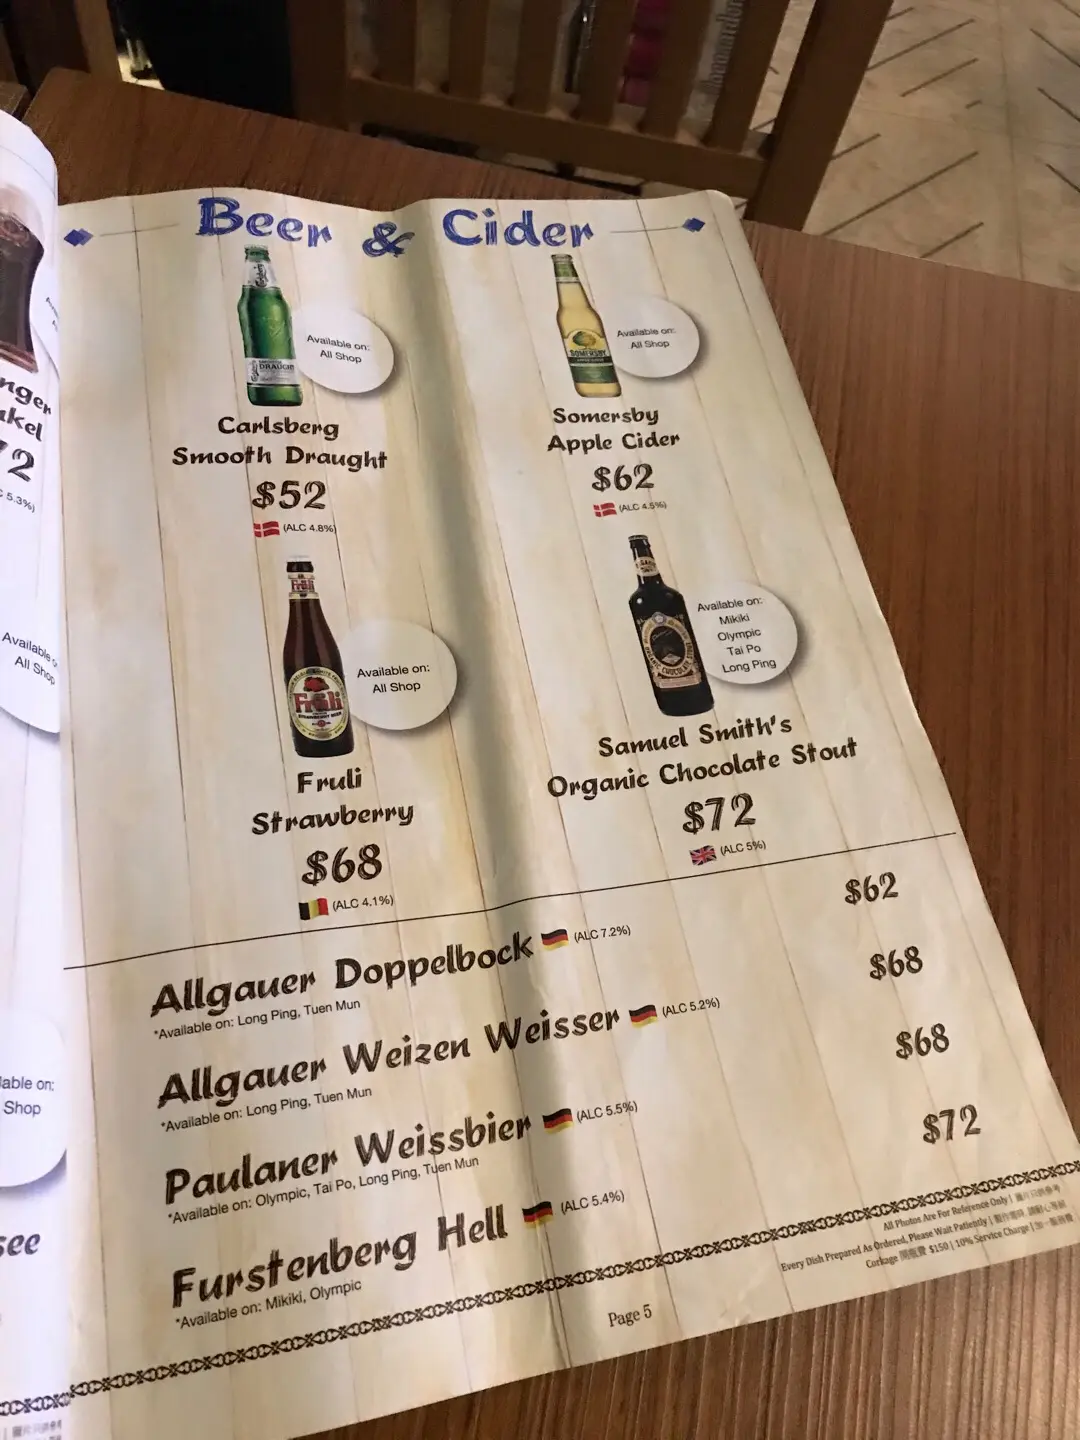 Beer & Cider
Available on:
All Shop
Carlsberg
Smooth Draught
$52
(ALC 4.8%)
Available on:
All Shop
SOMERSBY
Somersby
Apple Cider
$62
(ALC 4.5%)
Früli
Available on:
All Shop
Fruli
Strawberry
$68
(ALC 4.1%)
Available on:
Mikiki
Olympic
Tai Po
Long Ping
Samuel Smith's
Organic Chocolate Stout
$72
(ALC 5%)
Allgauer Doppelbock (ALC 7.2%) $62
*Available on: Long Ping, Tuen Mun
Allgauer Weizen Weisser (ALC 5.2%) $68
*Available on: Long Ping, Tuen Mun
Paulaner Weissbier (ALC 5.5%) $68
*Available on: Olympic, Tai Po, Long Ping, Tuen Mun
Furstenberg Hell (ALC 5.4%) $72
*Available on: Mikiki, Olympic
All Photos Are For Reference Only | 圖片只供參考
Every Dish Prepared As Ordered, Please Wait Patiently |
Corkage 開瓶費 $150 | 10% Service Charge | 加一服務費
Page 5
nger
kel
72
5.3%)
Available
All Shop
able on:
Shop
see